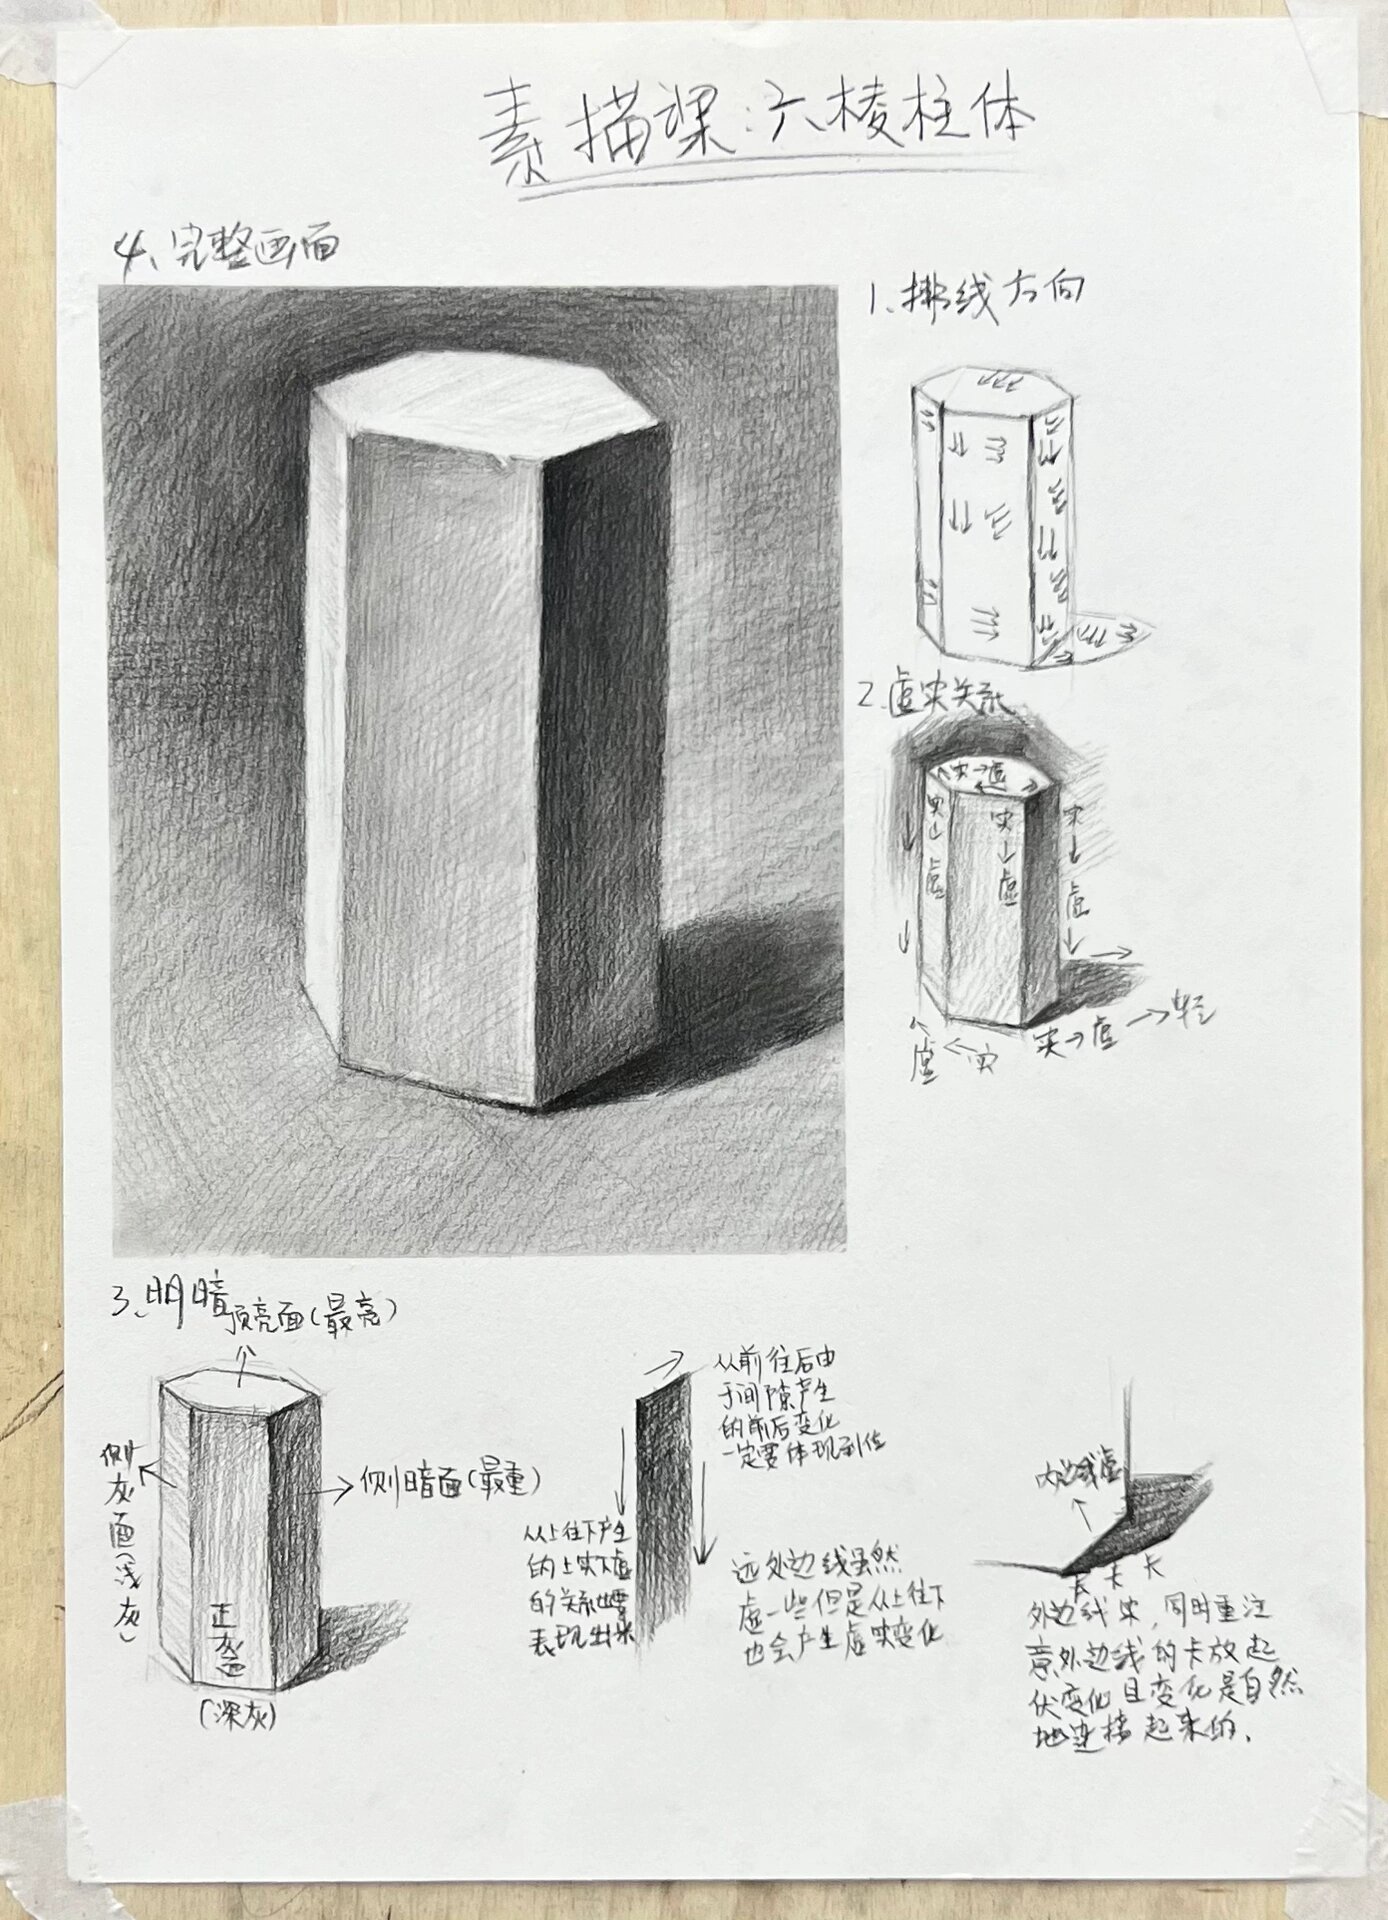 素描课:六棱柱体
4、完整画面
1、排线方向
2.虚实关系
实→虚
实
↓
虚
实
↓
虚
实
↓
虚
↓
虚←实
实→虚→轻
3、明暗
顶亮面(最亮)
侧灰面(浅灰)
侧暗面(最重)
正灰面
(深灰)
从前往后由
于间隙产生
的前后变化
一定要体现到位
从上往下产生
的上实下虚
的关系也要
表现出来
远处边线虽然
虚一些但是从上往下
也会产生虚实变化
内边线虚
卡 卡 卡
外边线实,同时重注
意外边线的卡放起
伏变化且变化是自然
地连接起来的.